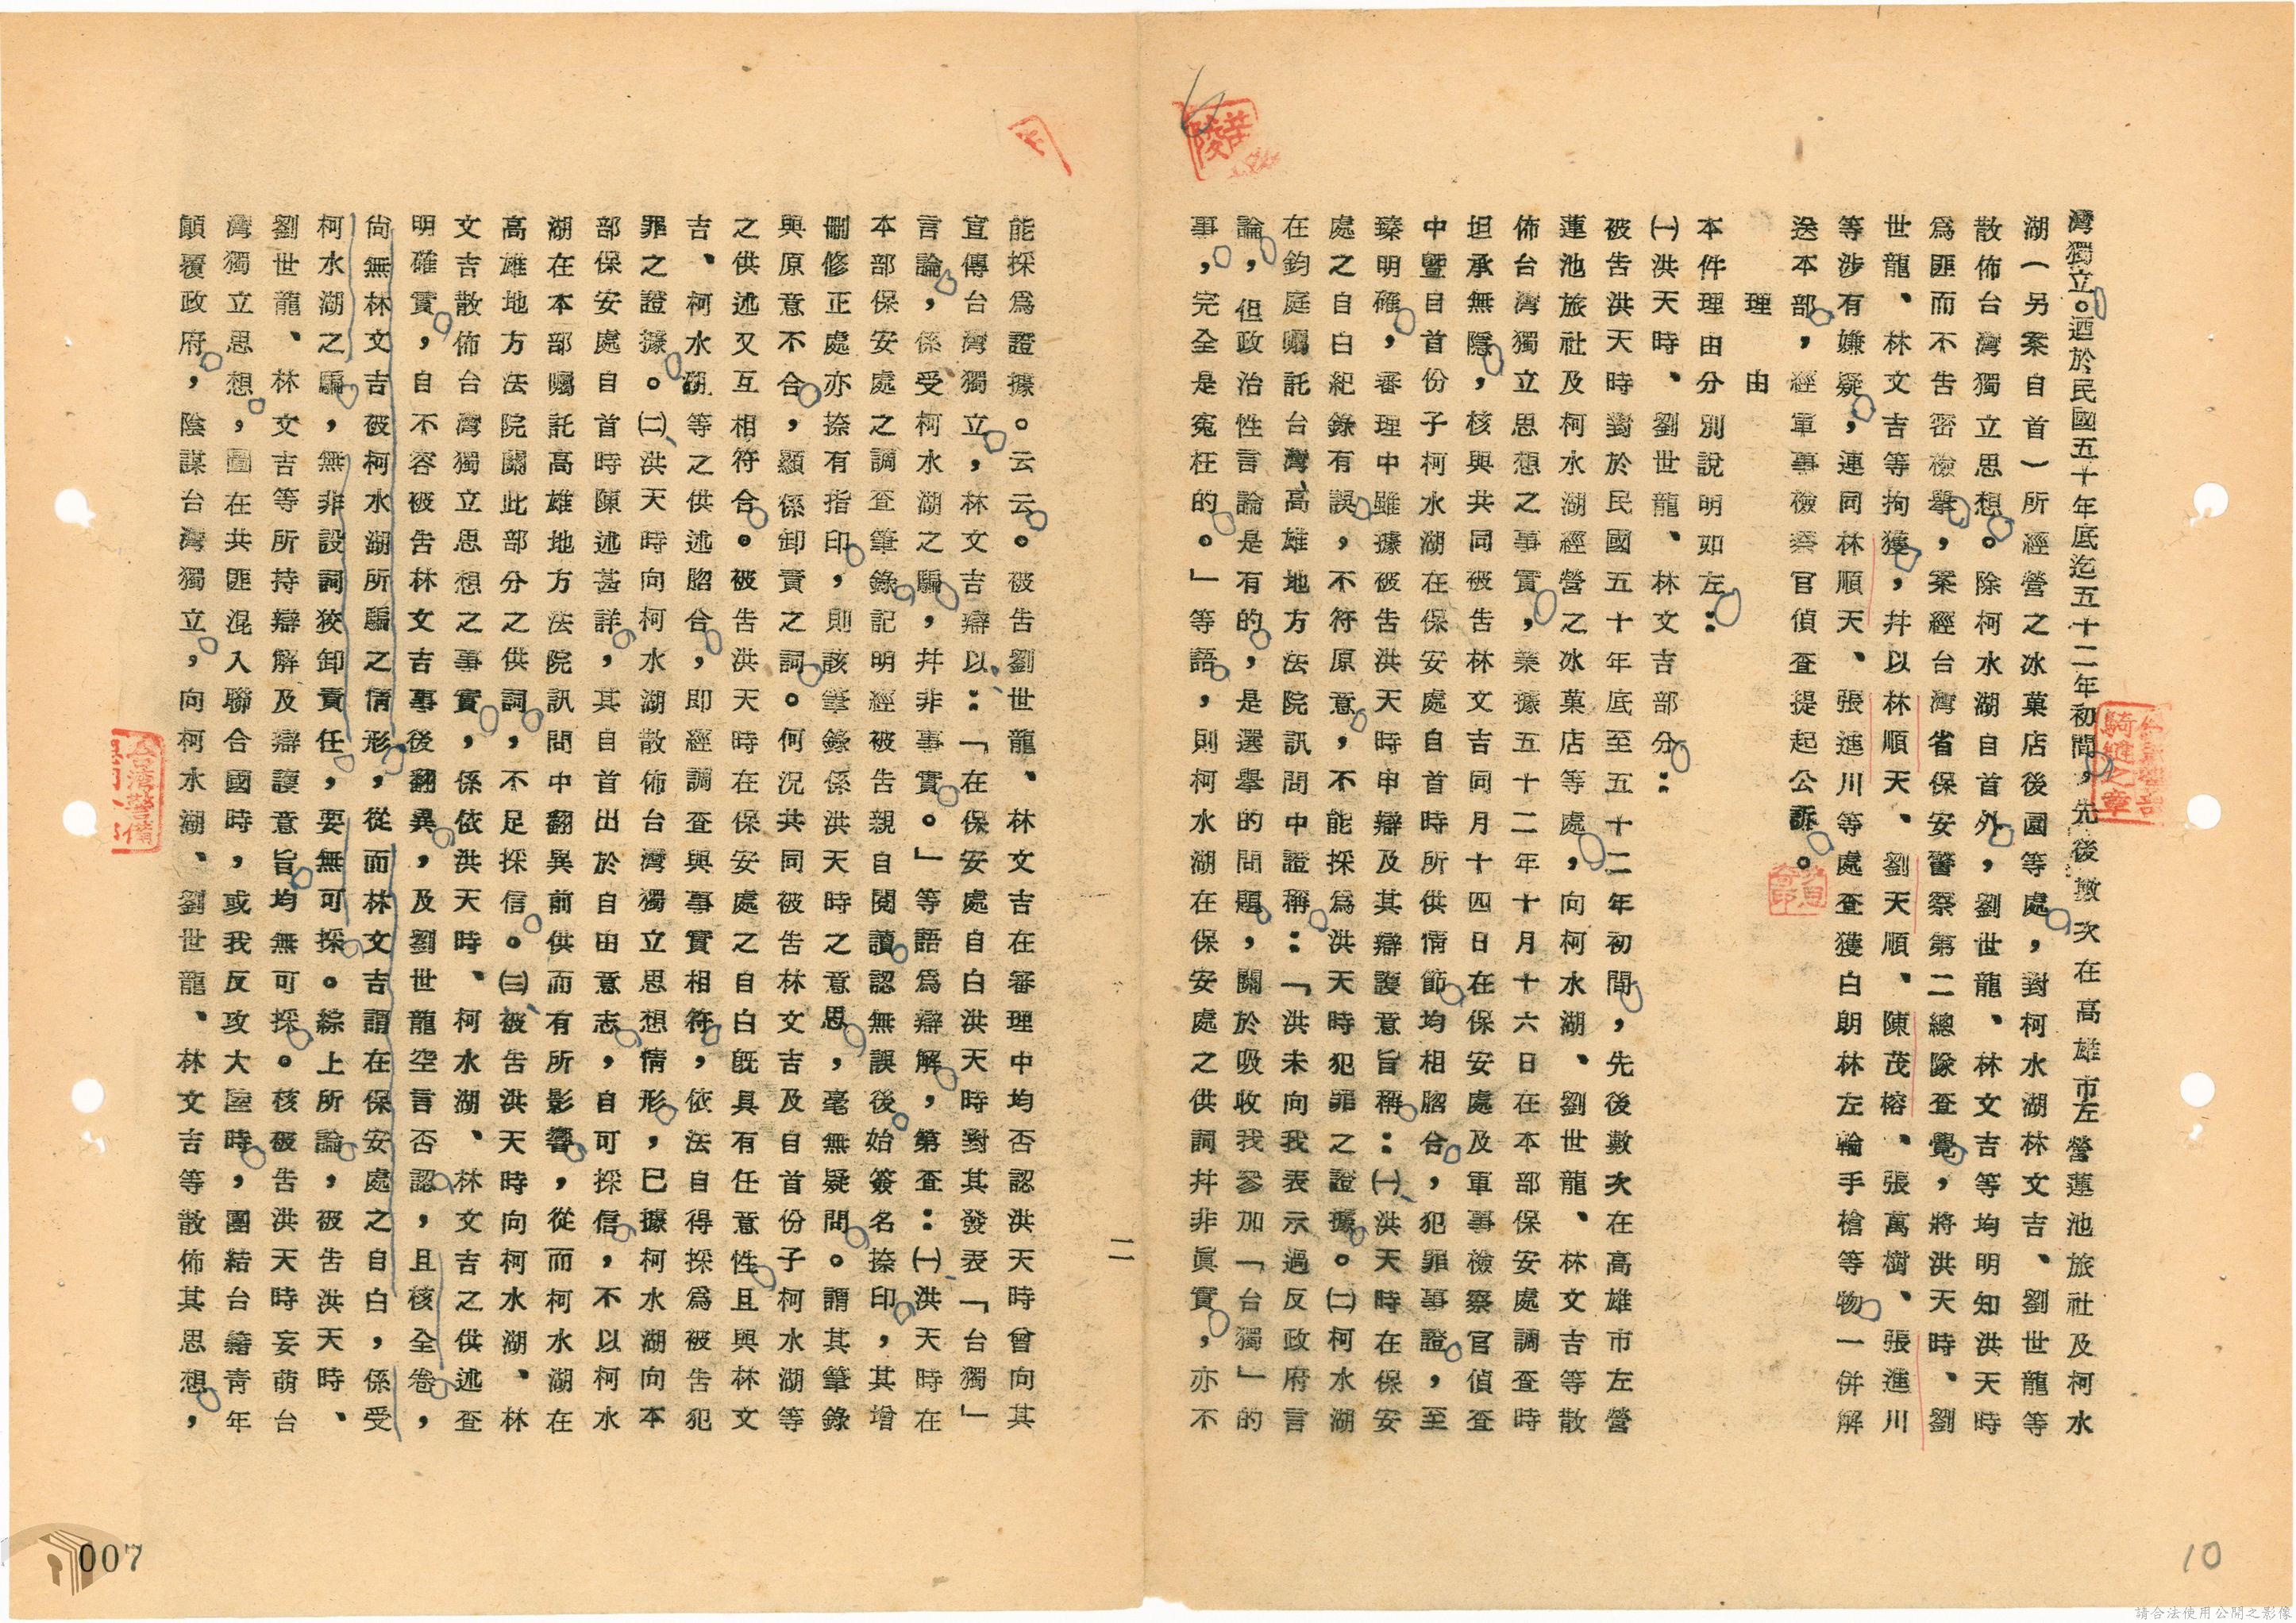 灣獨立。迺於民國五十年底迄五十二年初間，先後數次在高雄市左營蓮池旅社及柯水
湖（另案自首）所經營之冰菓店後園等處，對柯水湖林文吉、劉世龍等
散佈台灣獨立思想。除柯水湖自首外，劉世龍、林文吉等均明知洪天時
爲匪而不告密檢舉，案經台灣省保安警察第二總隊查覺，將洪天時、劉
世龍、林文吉等拘獲，幷以林順天、劉天順、陳茂榕、張萬樹、張進川
等涉有嫌疑，連同林順天、張進川等處查獲白朗林左輪手槍等物一併解
送本部，經軍事檢察官偵查提起公訴。
理由
本件理由分別說明如左：
㈠洪天時、劉世龍、林文吉部分：
被告洪天時對於民國五十年底至五十二年初間，先後數次在高雄市左營
蓮池旅社及柯水湖經營之冰菓店等處，向柯水湖、劉世龍、林文吉等散
佈台灣獨立思想之事實，業據五十二年十月十六日在本部保安處調查時
坦承無隱，核與共同被告林文吉同月十四日在保安處及軍事檢察官偵查
中暨自首份子柯水湖在保安處自首時所供情節均相脗合，犯罪事證，至
臻明確，審理中雖據被告洪天時申辯及其辯護意旨稱：㈠、洪天時在保安
處之自白紀錄有誤，不符原意，不能採爲洪天時犯罪之證據。㈡柯水湖
在鈞庭囑託台灣高雄地方法院訊問中證稱：「洪未向我表示過反政府言
論，但政治性言論是有的，是選舉的問題，關於吸收我參加「台獨」的
事，完全是寃枉的。」等語，則柯水湖在保安處之供詞幷非眞實，亦不
二
能採爲證據。云云。被告劉世龍、林文吉在審理中均否認洪天時曾向其
宣傳台灣獨立，林文吉辯以：「在保安處自白洪天時對其發表「台獨」
言論，係受柯水湖之騙，幷非事實。」等語爲辯解，第查：㈠、洪天時在
本部保安處之調查筆錄記明經被告親自閱讀認無誤後始簽名捺印，其增
刪修正處亦捺有指印，則該筆錄係洪天時之意思，毫無疑問。謂其筆錄
與原意不合，顯係卸責之詞。何況共同被告林文吉及自首份子柯水湖等
之供述又互相符合。被告洪天時在保安處之自白旣具有任意性且與林文
吉、柯水湖等之供述脗合，即經調查與事實相符，依法自得採爲被告犯
罪之證據。㈡、洪天時向柯水湖散佈台灣獨立思想情形，已據柯水湖向本
部保安處自首時陳述甚詳，其自首出於自由意志，自可採信，不以柯水
湖在本部囑託高雄地方法院訊問中翻異前供而有所影響，從而柯水湖在
高雄地方法院關此部分之供詞，不足採信。㈢、被告洪天時向柯水湖、林
文吉散佈台灣獨立思想之事實，係依洪天時、柯水湖、林文吉之供述查
明確實，自不容被告林文吉事後翻異，及劉世龍空言否認，且核全卷，
尙無林文吉被柯水湖所騙之情形，從而林文吉謂在保安處之自白，係受
柯水湖之騙，無非設詞狡卸責任，要無可採。綜上所論，被告洪天時、
劉世龍、林文吉等所持辯解及辯護意旨均無可採。核被告洪天時妄萌台
灣獨立思想，圖在共匪混入聯合國時，或我反攻大陸時，團結台籍青年
顚覆政府，陰謀台灣獨立，向柯水湖、劉世龍、林文吉等散佈其思想，
騎縫之章
007
10
請合法使用公開之影像